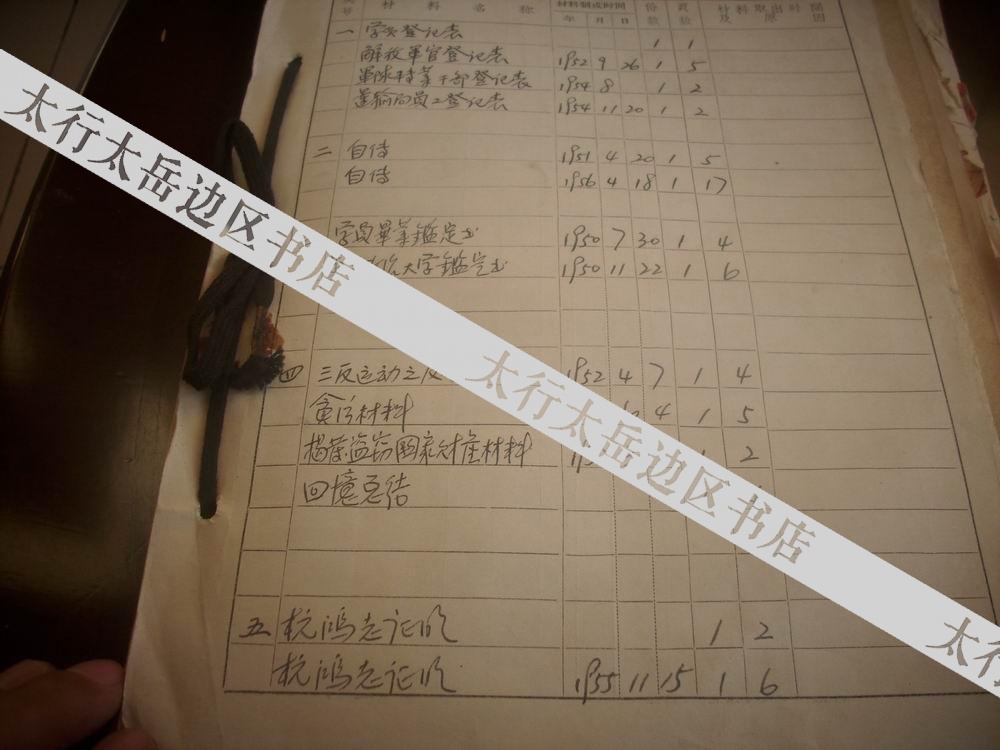 号 材 料 名 称 材料制成时间 年 月 日 份数 页数 材料取出时间及原因
一 学员登记表 1 1
解放军官登记表 1952 9 26 1 5
军队转业干部登记表 1954 8 1 2
运输局员工登记表 1954 11 20 1 2
二 自传 1951 4 20 1 5
自传 1956 4 18 1 17
学员毕业鑑定书 1950 7 30 1 4
大学鑑定书 1950 11 22 1 6
四 三反运动之 1952 4 7 1 4
贪污材料 4 1 5
盗窃国家财产材料 2
回境总结
五 杭鸿志证明 1 2
杭鸿志证明 1955 11 15 1 6
太行太岳边区书店
太行太岳边区书店
太行